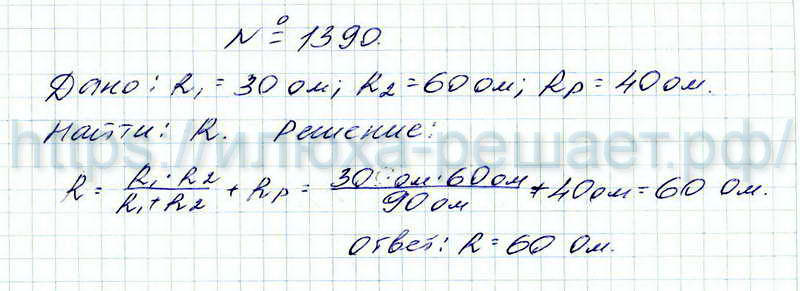 № 1390.
Дано: R₁ = 30 ом; R₂ = 60 ом; Rр = 40 ом.
Найти: R. Решение:
https://импоха-решает.рф/
R = R₁·R₂ / R₁+R₂ + Rр = 30 ом·60 ом / 90 ом + 40 ом = 60 Ом.
ответ: R = 60 Ом.